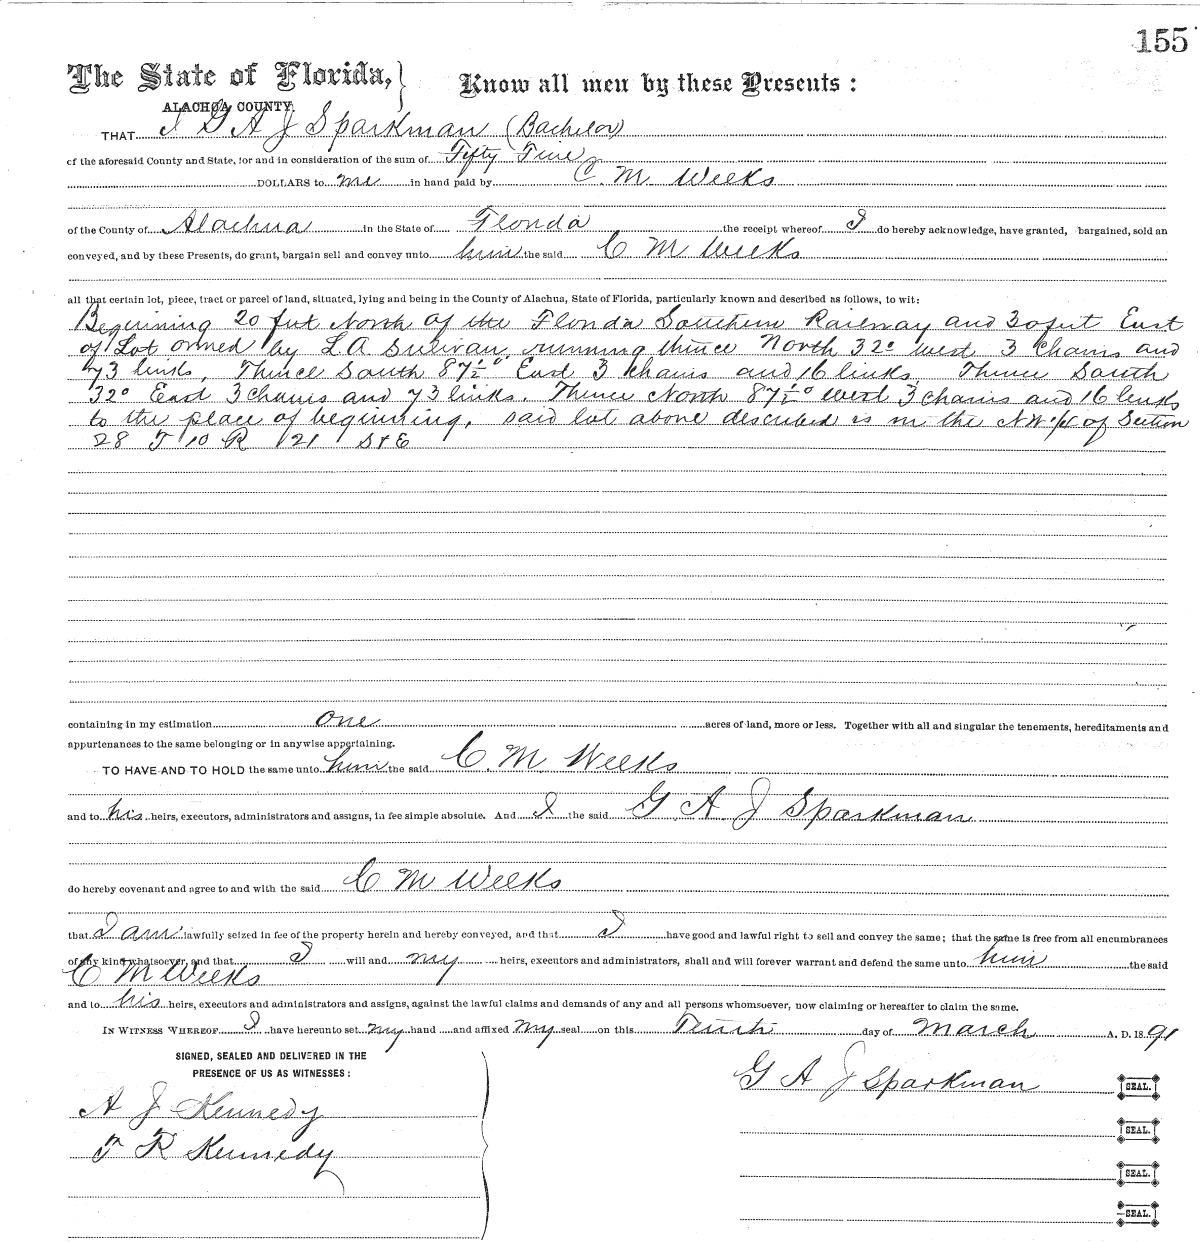 155
The State of Florida, } Know all men by these Presents:
ALACHUA COUNTY.
THAT I G A J Sparkman (Bachelor)
of the aforesaid County and State, for and in consideration of the sum of Fifty Five
DOLLARS to me in hand paid by C. M Weeks
of the County of Alachua in the State of Florida the receipt whereof I do hereby acknowledge, have granted, bargained, sold an
conveyed, and by these Presents, do grant, bargain sell and convey unto him the said C M Weeks
all that certain lot, piece, tract or parcel of land, situated, lying and being in the County of Alachua, State of Florida, particularly known and described as follows, to wit:
Beginning 20 feet North of the Florida Southern Railway and 30 feet East
of Lot owned by L A Sulivan, running thence North 32° west 3 chains and
73 links, Thence South 87½° East 3 chains and 16 links. Thence South
32° East 3 chains and 73 links. Thence North 87½° west 3 chains and 16 links
to the place of beginning, said lot above described is in the NW ¼ of Section
28 T 10 R 21 S & E
containing in my estimation one acres of land, more or less. Together with all and singular the tenements, hereditaments and
appurtenances to the same belonging or in anywise appertaining.
TO HAVE AND TO HOLD the same unto him the said C. M. Weeks
and to his heirs, executors, administrators and assigns, in fee simple absolute. And I the said G A J Sparkman
do hereby covenant and agree to and with the said C M Weeks
that I am lawfully seized in fee of the property herein and hereby conveyed, and that I have good and lawful right to sell and convey the same; that the same is free from all encumbrances
of any kind whatsoever, and that I will and my heirs, executors and administrators, shall and will forever warrant and defend the same unto him the said
C M Weeks
and to his heirs, executors and administrators and assigns, against the lawful claims and demands of any and all persons whomsoever, now claiming or hereafter to claim the same.
IN WITNESS WHEREOF I have hereunto set my hand and affixed my seal on this Tenth day of March A. D. 1891
SIGNED, SEALED AND DELIVERED IN THE
PRESENCE OF US AS WITNESSES:
G A J Sparkman SEAL.
A J Kennedy
SEAL.
T R Kennedy
SEAL.
SEAL.